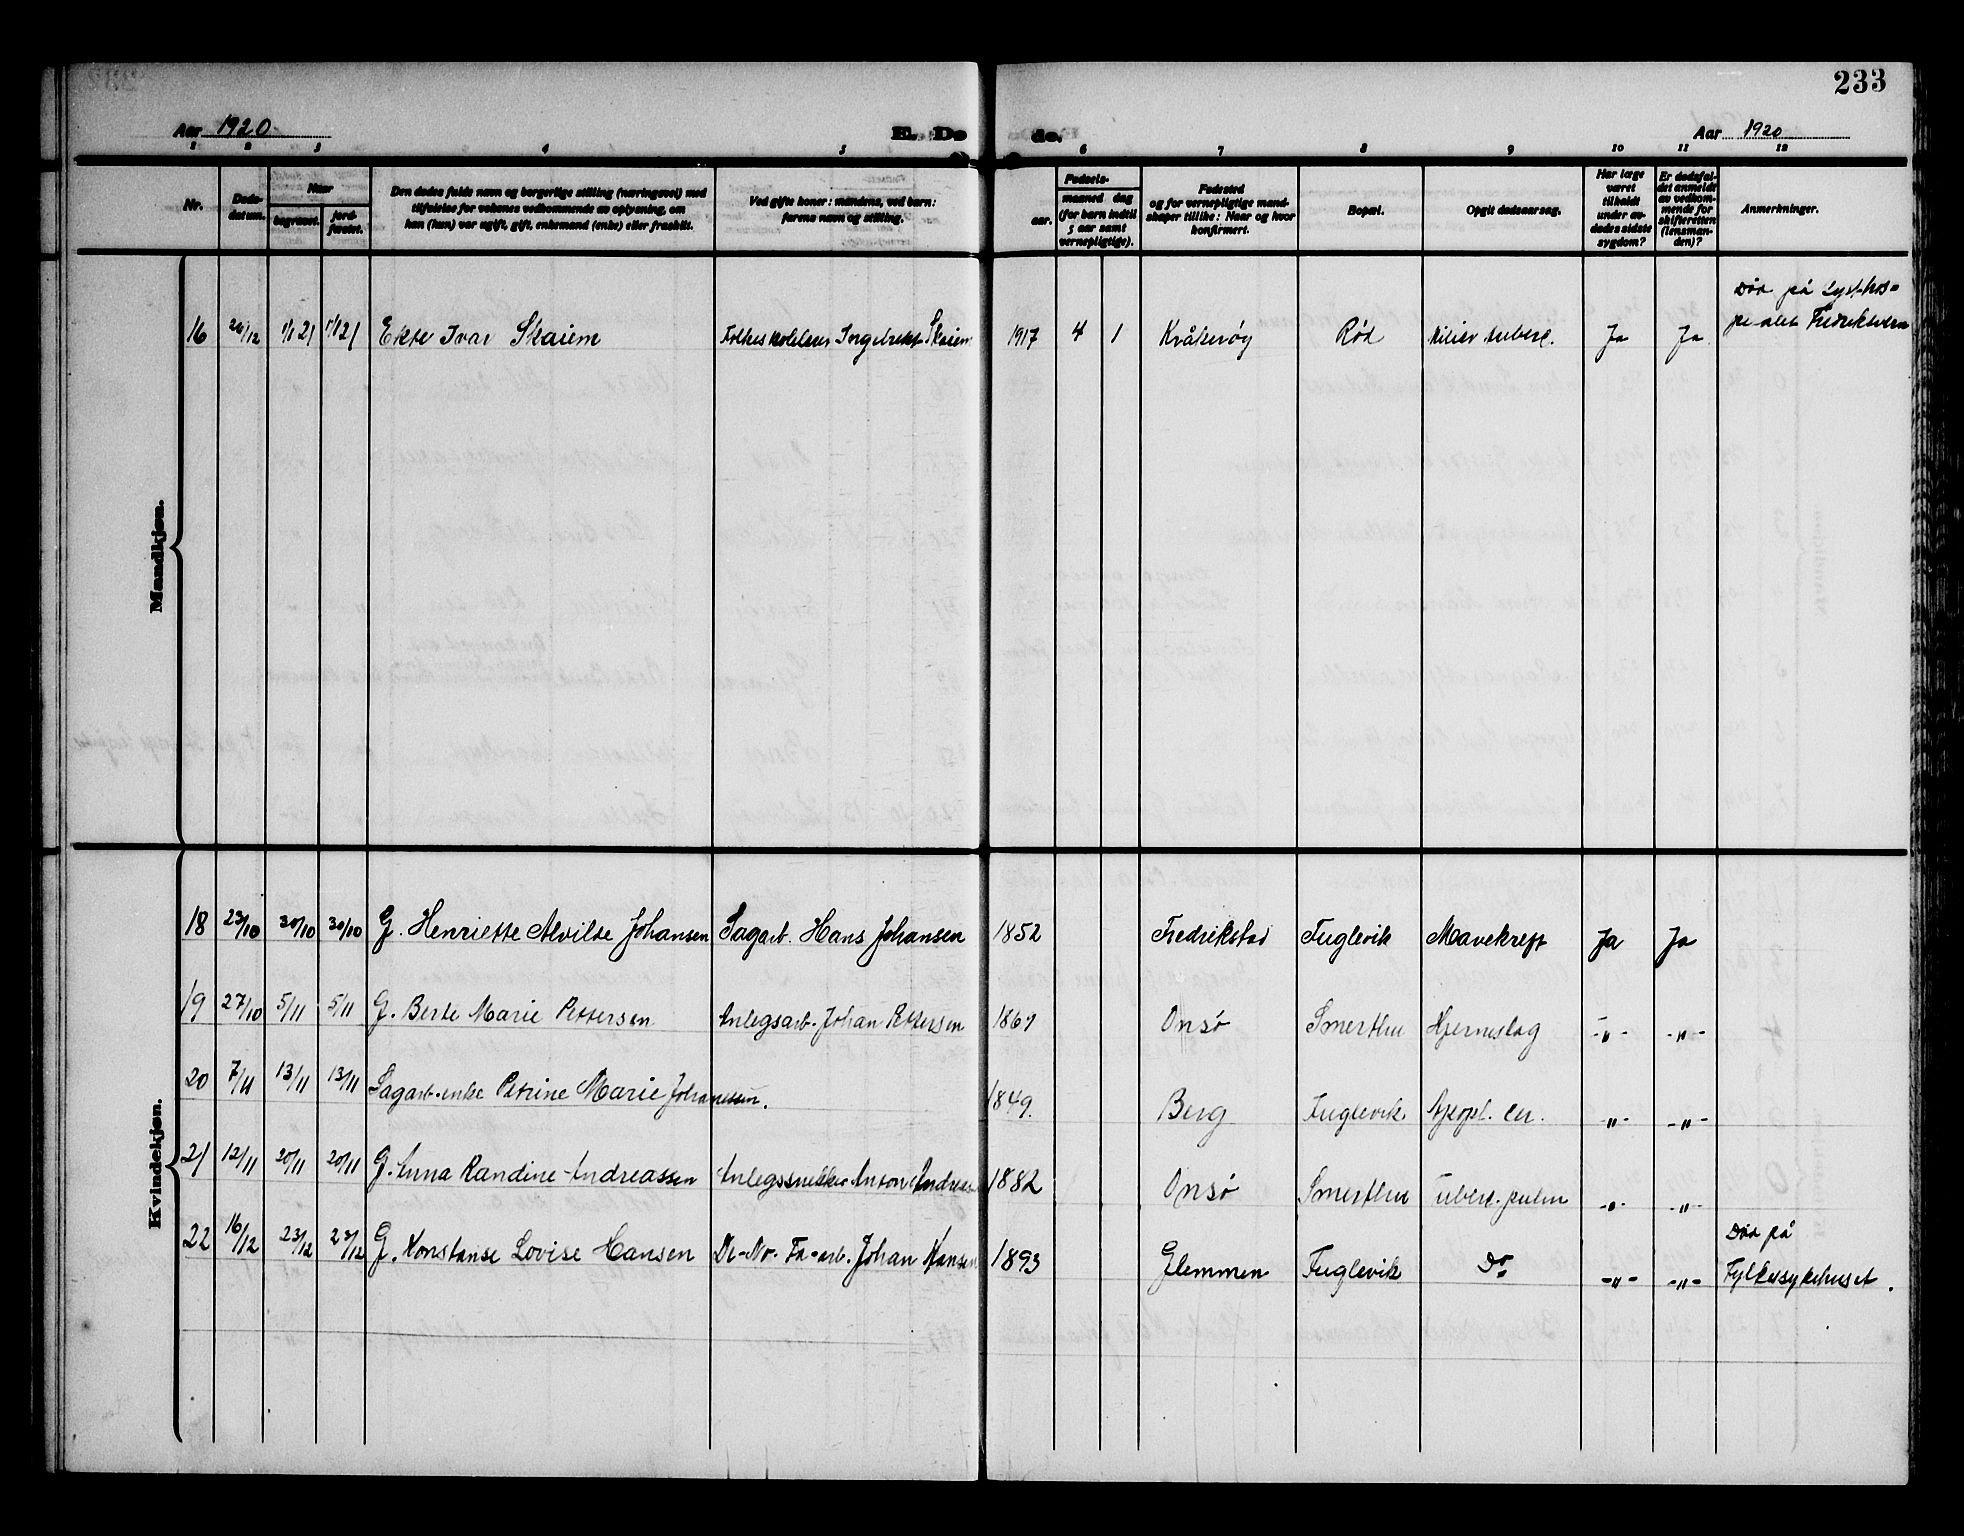 233
Aar 1920
E. Dø
de.
Aar 1920
1 2 3 4 5 6 7 8 9 10 11 12
Nr.
Døds-
datum.
Naar
begravet.
jord-
fæstet.
Den dødes fulde navn og borgerlige stilling (næringsvei) med
tilføielse for voksnes vedkommende av oplysning, om
han (hun) var ugift, gift, enkemand (enke) eller fraskilt.
Ved gifte koner: mandens, ved barn:
farens navn og stilling.
Fødsels-
aar.
maaned dag
(for barn indtil
5 aar samt
vernepligtige).
Fødested
og for vernepligtige mand-
skaper tillike: Naar og hvor
konfirmert.
Bopæl.
Opgit dødsaarsag.
Har læge
været
tilkaldt
under av-
dødes sidste
sygdom?
Er dødsfal-
det anmeldt
av vedkom-
mende for
skifteretten
(lensman-
den)?
Anmerkninger.
Mandkjøn.
16 1/1 21 1/1 21 Ivar Skaiem Ingebrekt Skaiem 1917 4 1 Kråkerøy Rød Ja Ja Død på
Fredriksten
Kvindekjøn.
18 23/10 30/10 30/10 G. Henriette Alvilde Johansen Sagarb. Hans Johansen 1852 Fredrikstad Fuglevik Mavekreft Ja Ja
19 27/10 5/11 5/11 G. Berte Marie Pettersen Anlegsarb. Johan Pettersen Onsø Hjerneslag -"- -"-
20 7/11 13/11 13/11 Sagarb.enke Petrine Marie Johannessen. 1849. Berg Fuglevik -"- -"-
21 12/11 20/11 20/11 G. Anna Randine Andreassen Anlegssnekker Anton Andreas 1882 Onsø -"- -"-
22 16/12 23/12 23/12 G. Konstanse Lovise Hansen Johan Hansen 1893 Glemmen Fuglevik Do -"- -"- Død på
Fylkesykehuset.